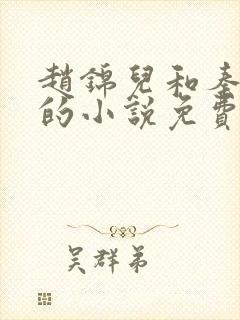 趙錦兒和秦
的小說免費
吳群弟